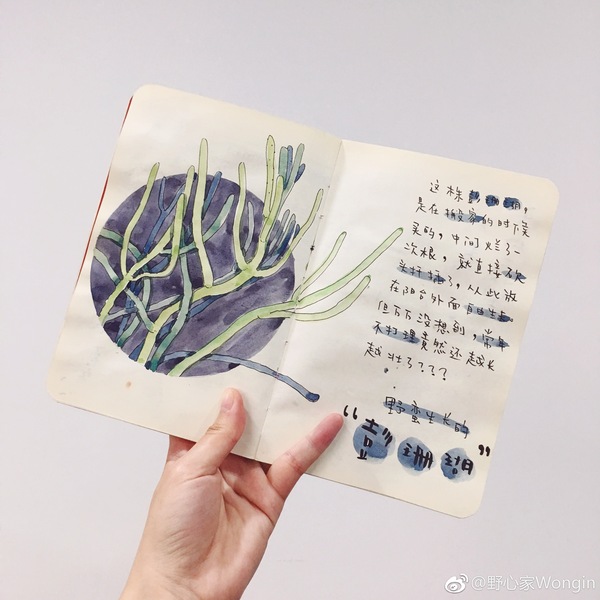 这株彭珊瑚,
是在搬家的时候
买的,中间烂了一
次根,就直接砍
头打插了,从此放
在阳台外面自由生长
但万万没想到,常年
不打理竟然还越长
越壮了???
野蛮生长的
“彭珊瑚”
@野心家Wongin